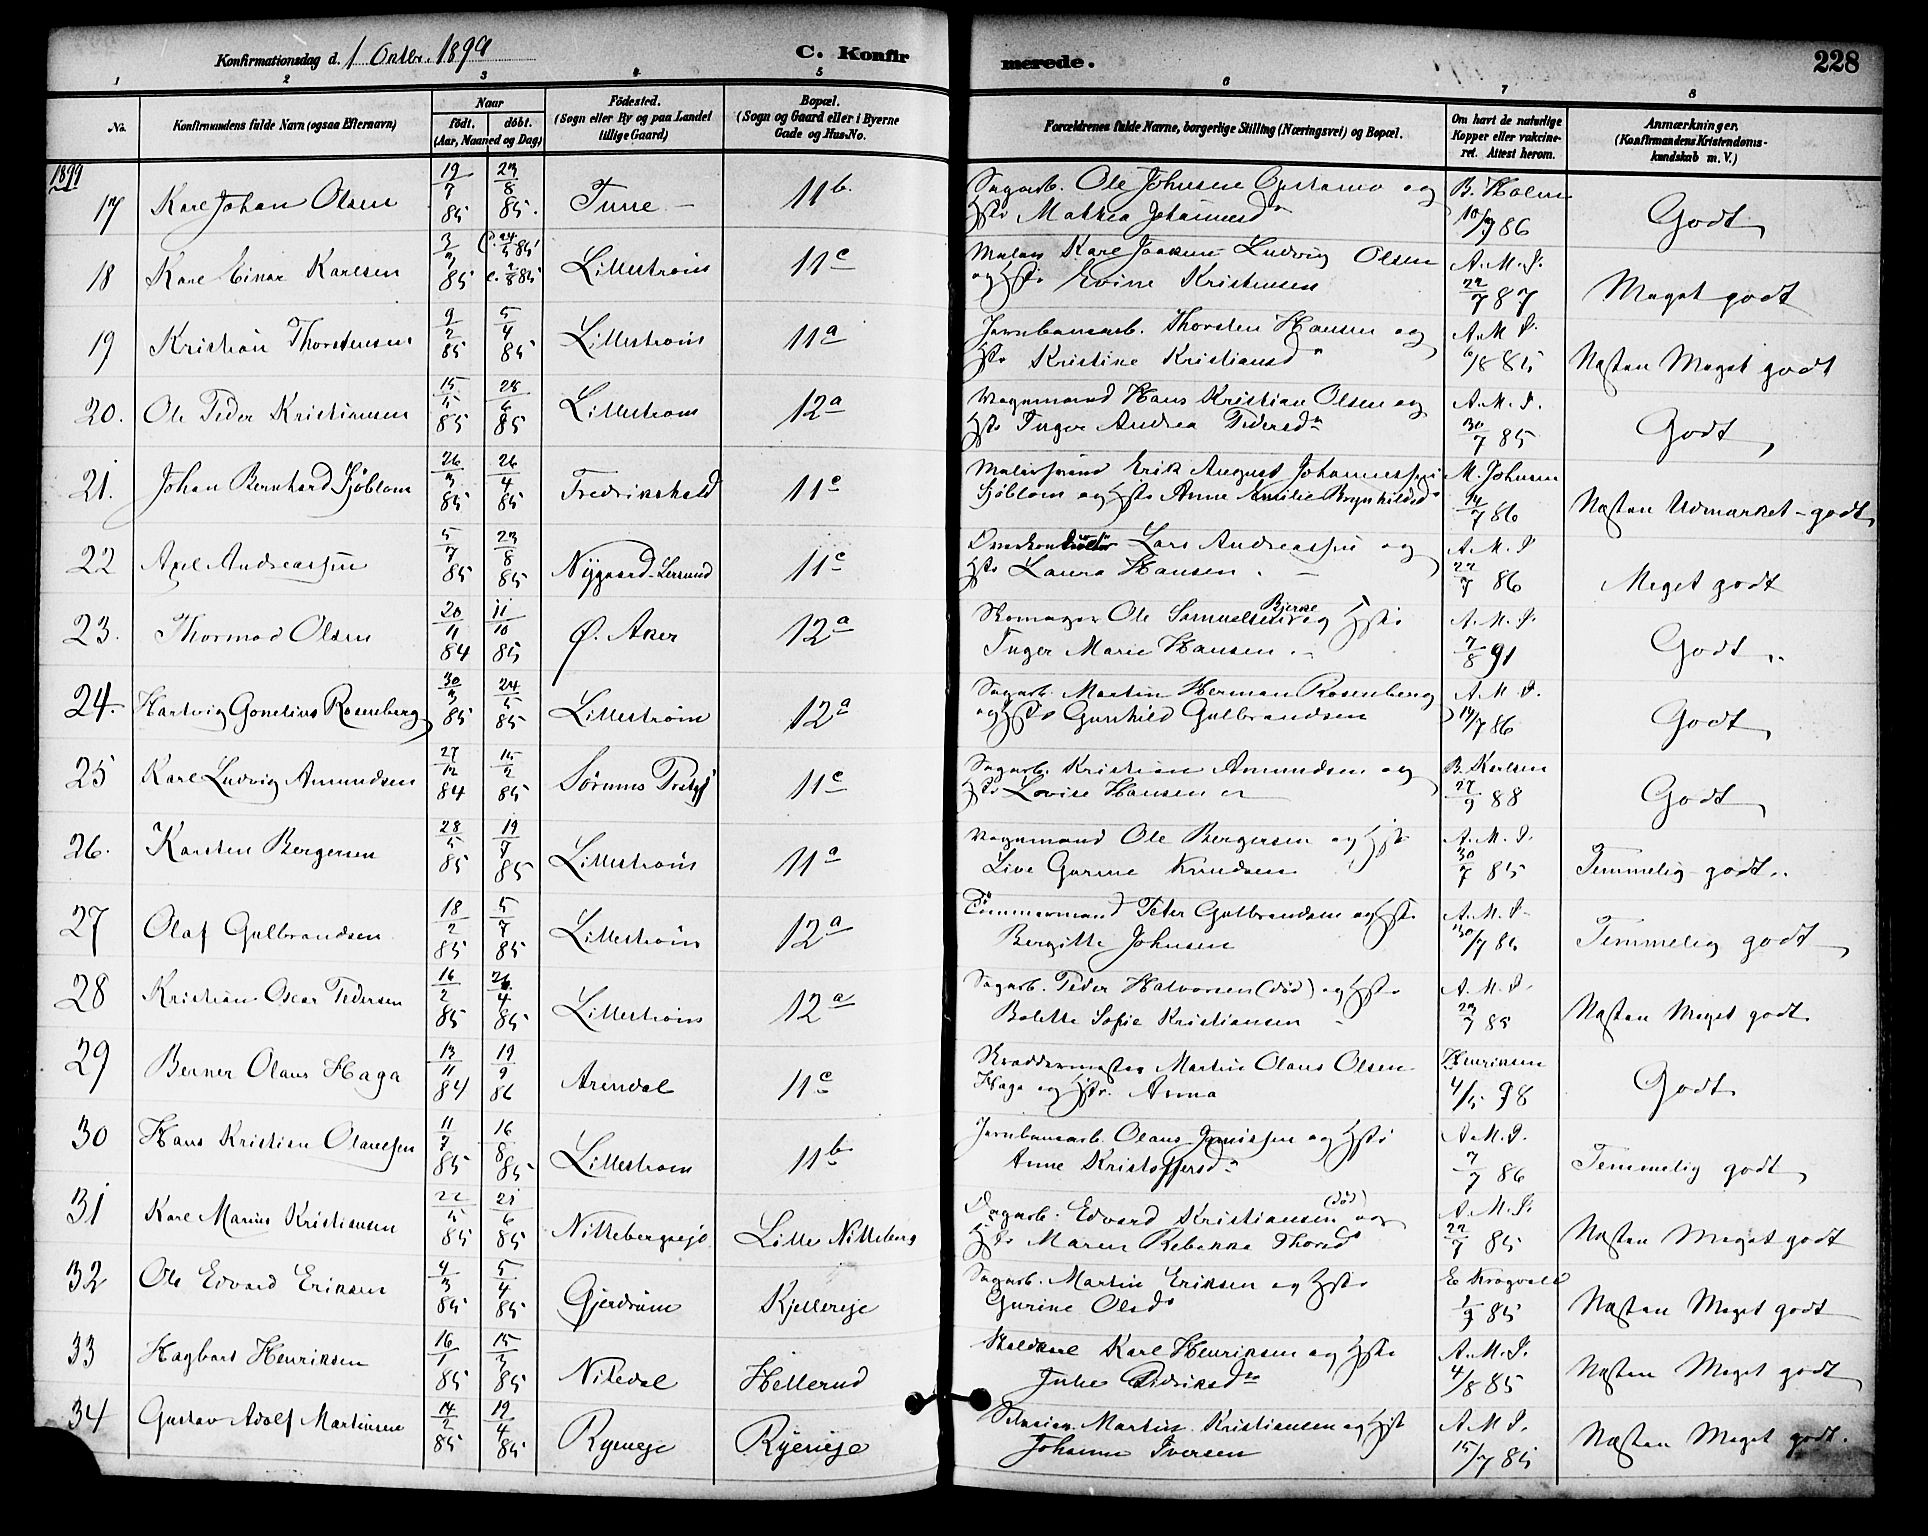 Konfirmationsdag d. 1 Octbr. 1899
C. Konfirmerede.
228
1 2 3 4 5 6 7 8
No.
Konfirmandens fulde Navn (ogsaa Efternavn)
Naar
født.
døbt.
(Aar, Maaned og Dag)
Fødested.
(Sogn eller By og paa Landet
tillige Gaard)
Bopæl.
(Sogn og Gaard eller i Byerne
Gade og Hus-No.
Forældrenes fulde Navne, borgerlige Stilling (Næringsvei) og Bopæl.
Om havt de naturlige
Kopper eller vakcine-
ret. Attest herom.
Anmærkninger.
(Konfirmandens Kristendoms-
kundskab m. V.)
1899
17 Karl Johan Olsen 19/7 85 23/8 85. Tune 11b. Sagarb. Ole Johnsen og
Hst. Mathea Johannesd. B. Holm 86 Godt
18 Karl Einar Karlsen 3/3 85 Lillestrøm 11c Maler Karl Joakim Ludvig Olsen
og Hst. Evine Kristensen A. M. S. 22/7 87 Meget godt
19 Kristian Thorstensen 9/2 85 5/4 85 Lillestrøm 11a Jernbanearb. Thorsten Hansen og
Hst. Kristine Kristiansd. A. M. S. 6/8 85 Næsten Meget godt
20. Ole Peder Kristiansen 15/5 85 28/6 85 Lillestrøm 12a Vognmand Hans Kristian Olsen og
Hst. Inger Andrea Pedersd. A. M. S. 30/7 85 Godt
21. Johan Bernhard Sjøblom 26/3 85 26/4 85 Fredrikshald 11c Malersvend Erik August Johannessen
Sjøblom og Hst. Anne Amilie Brynhildsd. M. Johnsen 14/7 86 Næsten Udmærket-godt
22 Axel Andreassen 5/7 85 23/8 85 Nygaard-Lersund 11c Lars Andreassen og
Hst. Laura Hansen. A. M. S. 22/7 86 Meget godt
23. Thormod Olsen 20/11 84 11/10 85 Ø. Aker 12a Skomager Ole Samuelsen Bjerke og Hst.
Inger Marie Hansen. A. M. S. 7/8 91 Godt
24. Hartvig Gonelius Rosenberg 30/3 85 24/5 85 Lillestrøm 12a Sagarb. Martin Herman Rosenberg
og Hst. Gunhild Gulbrandsen A. M. S. 14/7 86 Godt
25 Karl Ludvig Amundsen 27/12 84 15/2 85 Sørums 11c Sagarb. Kristian Amundsen og
Hst. Lovise Hansen B. Karlsen 27/9 88 Godt
26. Karsten Bergersen 28/5 85 19/7 85 Lillestrøm 11a Vognmand Ole Bergersen og Hst.
Live Gurine Knudsen A. M. S. 30/7 85 Temmelig godt.
27 Olaf Gulbrandsen 18/2 85 5/7 85 Lillestrøm 12a Tømmermand Peter Gulbrandsen og Hst.
Bergitte Johnsen A. M. S. 30/7 85 Temmelig godt
28 Kristian Oscar Pedersen 16/2 85 26/4 85 Lillestrøm 12a Sagarb. Peder Halvorsen (død) og Hst.
Bolette Sofie Kristiansen A. M. S. 23/7 85 Næsten Meget godt
29 Berner Olaus Haga 13/11 84 19/9 86 Arendal 11c Skræddermester Martin Olaus Olsen
Haga og Hst. Anna Henriksen 4/5 98 Godt
30 Hans Kristian Olaussen 11/7 85 16/8 85 Lillestrøm 11b Jernbanearb. Olaus og Hst.
Anne Kristoffersd. A. M. S. 7/7 86 Temmelig godt
31 Karl Marius Kristiansen 22/5 85 21/6 85 Nittebergseje Lille Nitteberg Dagarb. Edvard Kristiansen (død) og
Hst. Maren Rebekka Thorsd. A. M. S. 22/7 85 Næsten Meget godt
32 Ole Edvard Eriksen 4/3 85 5/4 85 Gjerdrum Kjellereje Sagarb. Martin Eriksen og Hst.
Gurine Olsd. E. Krogvold 1/9 85 Næsten Meget godt
33 Hagbart Henriksen 16/1 85 15/3 85 Nitedal Hellerud Staldkarl Karl Henriksen og Hst.
Julie Didriksd. A. M. S. 4/8 85 Næsten Meget godt
34 Gustav Adolf Martinsen 14/2 85 19/4 85 Ryeneje Ryeneje Selveier Martin Kristiansen og Hst.
Johanne Iversen A. M. S. 15/7 85 Næsten Meget godt.